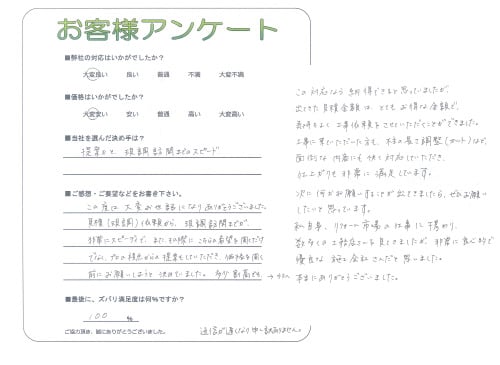 お客様アンケート
■弊社の対応はいかがでしたか？
大変良い 良い 普通 不満 大変不満
■価格はいかがでしたか？
大変安い 安い 普通 高い 大変高い
■当社を選んだ決め手は？
提案力と、現調訪問までのスピード
■ご感想・ご要望などをお書き下さい。
この度は大変お世話になりありがとうございました。
見積(現調)依頼から、現調訪問までが、
非常にスピーディで、またその際にこちらの希望を聞くだけ
でなく、プロの視点からの提案もしていただき、価格を聞く
前にお願いしようと決めていました。多少割高でも、→
■最後に、ズバリ満足度は何%ですか？
100 %
ご協力頂き、誠にありがとうございました。
返信が遅くなり申し訳ありません。
この対応なら納得できると思っていましたが、
出てきた見積金額は、とてもお得な金額で、
気持ちよく工事依頼をさせていただくことができました。
工事に来ていただいた方も、
面倒な内容にも快く対応していただき、
仕上がりも非常に満足しています。
次に何かお願いすることが出てきましたら、ぜひお願い
したいと思っています。
私自身、リフォーム市場の仕事に携わり、
数多くの工務店さんを見てきましたが、非常に良心的で
優良な施工会社さんだと思いました。
本当にありがとうございました。